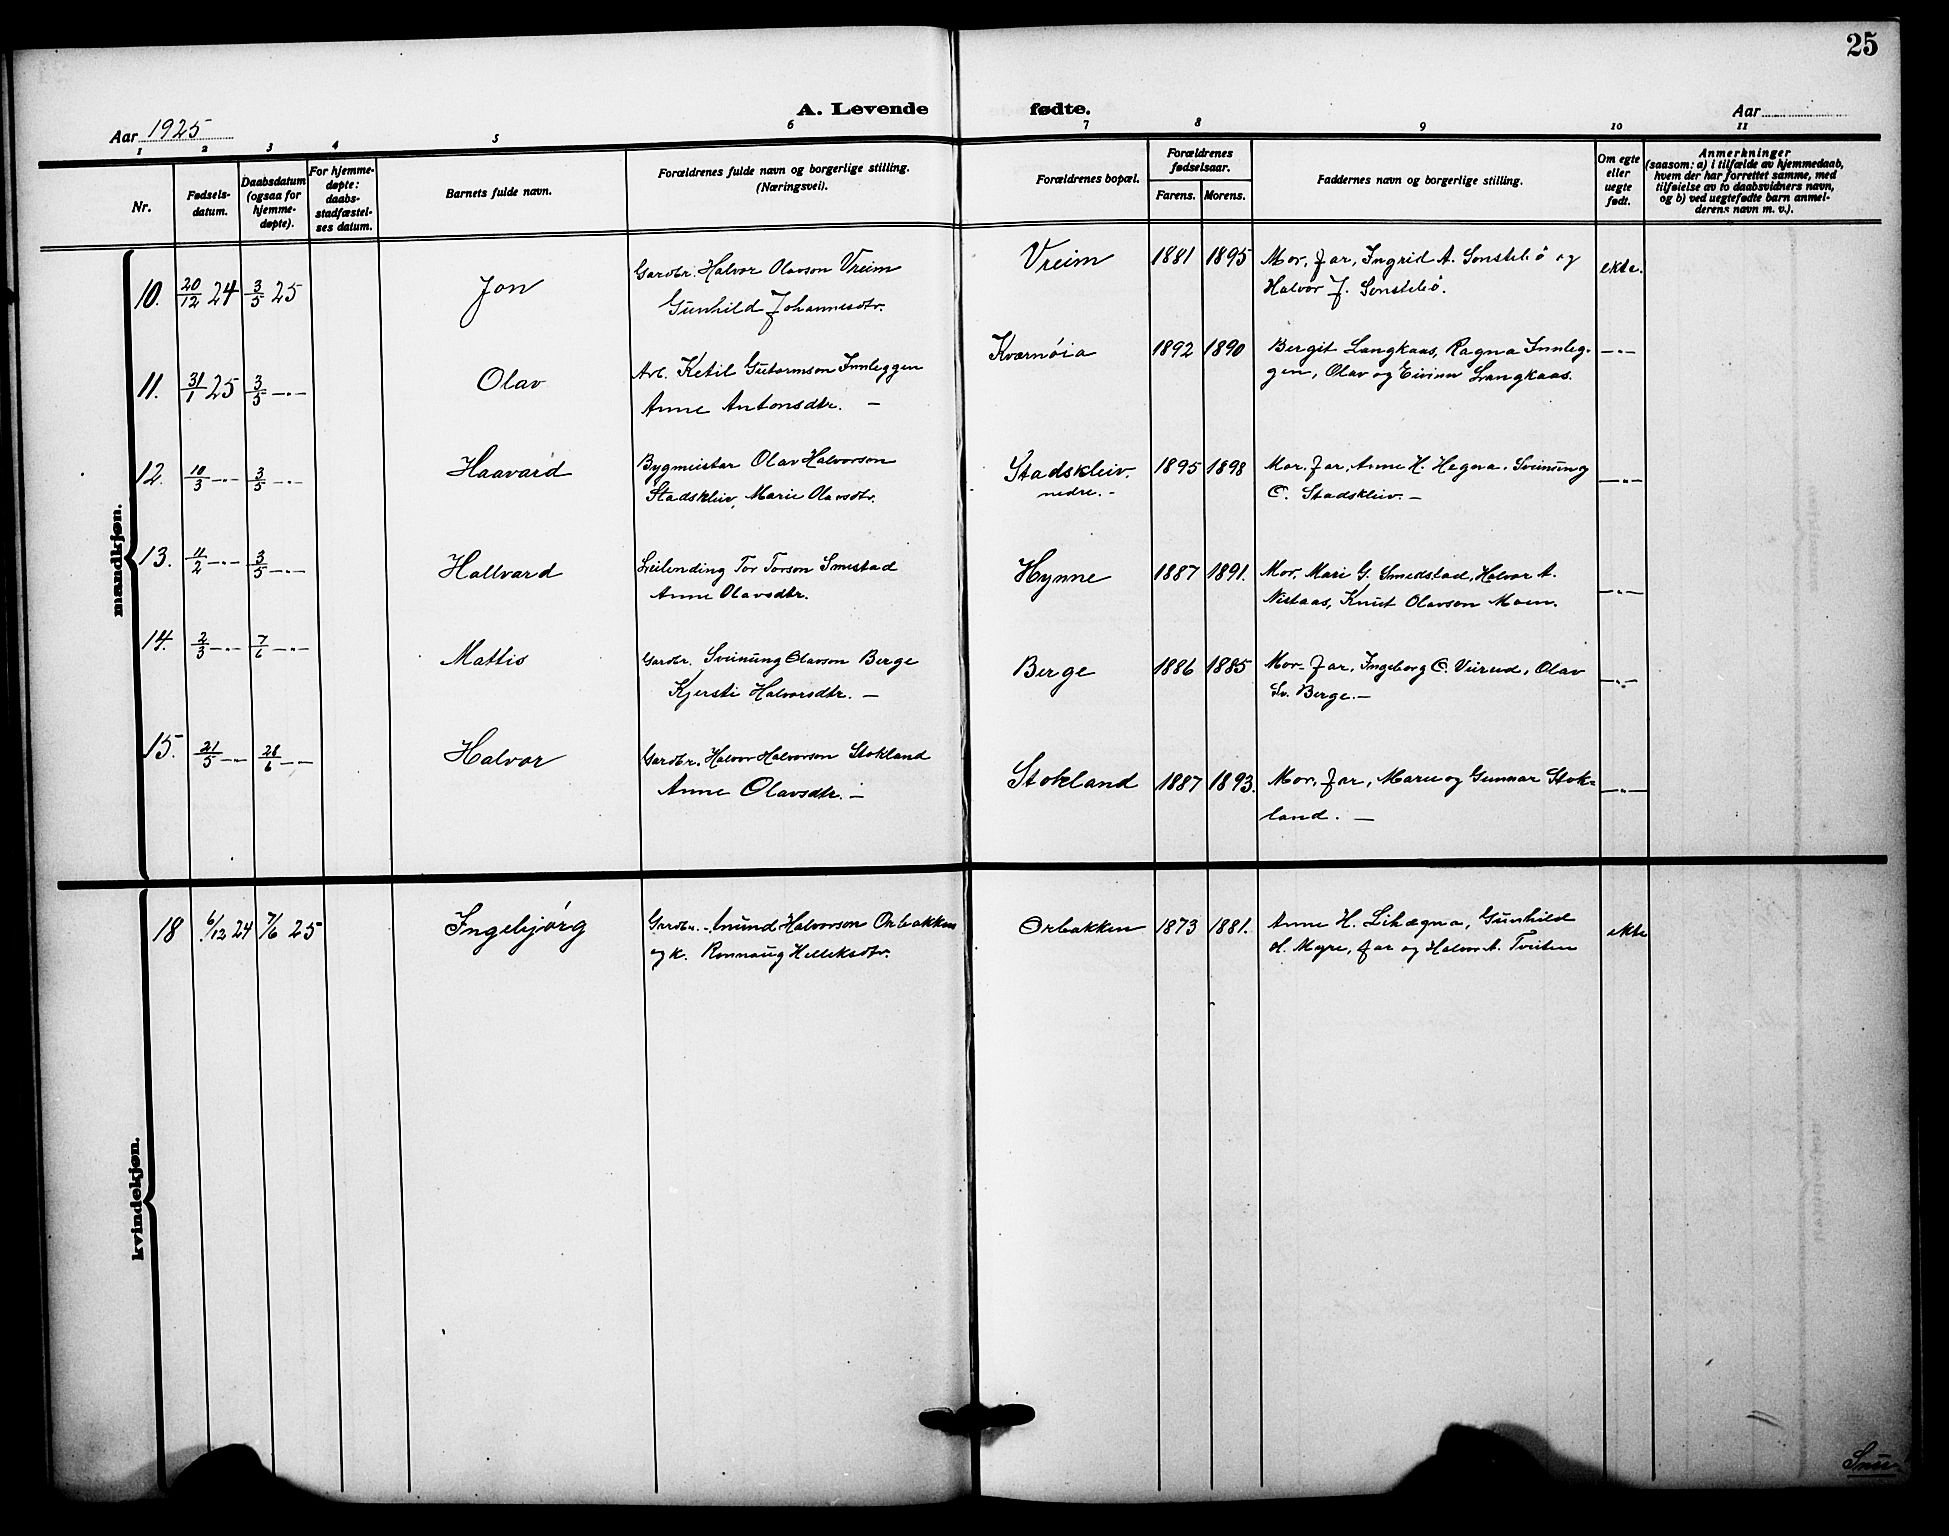 25
A. Levende fødte.
Aar 1925
Aar
1 2 3 4 5 6 7 8 9 10 11
Nr.
Fødsels-
datum.
Daabsdatum
(ogsaa for
hjemme-
døpte).
For hjemme-
døpte:
daabs-
stadfæstel-
ses datum.
Barnets fulde navn.
Forældrenes fulde navn og borgerlige stilling.
(Næringsvei).
Forældrenes bopæl.
Forældrenes
fødselsaar.
Farens. Morens.
Faddernes navn og borgerlige stilling.
Om egte
eller
uegte
født.
Anmerkninger
(saasom: a) i tilfælde av hjemmedaab,
hvem der har forrettet samme, med
tilføielse av to daabsvidners navn,
og b) ved uegtefødte barn anmel-
derens navn m. v.).
mandkjøn.
10. 20/12 24 3/5 25 Jon
Gardbr. Halvor Olavson Vreim
Gunhild Johannesdtr.
Vreim 1881 1895
Mor, Far, Ingrid A. Sønstebö og
Halvor J. Sønstebö.
ekte.
11. 31/1 25 3/5 —„— Olav
Arb. Ketil Gutormson Innleggen
Anne Antonsdtr. —
Kværnöia 1892 1890
Bergit Langkaas, Ragna Innleg-
gen, Olav og Eivinn Langkaas.
—„—
12. 10/3 —„— 3/5 —„— Haavard
Bygmeister Olav Halvorson
Stadskleiv, Marie Olavsdtr.
Stadskleiv.
nedre. -
1895 1898
Mor, Far, Anne H. Hegna, Sveinung
O. Stadskleiv. —
—„—
13. 11/2 —„— 3/5 —„— Hallvard
Leilending Tor Torson Smestad
Anne Olavsdtr.
Hynne 1887 1891.
Mor, Mari G. Smedstad, Halvor A.
Nistaas, Knut Olavson Moen.
—„—
14. 2/3 —„— 7/6 —„— Mattis
Gardbr. Sveinung Olavson Berge
Kjersti Halvorsdtr. —
Berge 1886 1885
Mor, Far, Ingeborg O. Veirud, Olav
Sv. Berge. —
—„—
15. 21/5 —„— 28/6 —„— Halvor
Gardbr. Halvor Halvorson Stokland
Anne Olavsdtr. —
Stokland 1887 1893.
Mor, Far, Marie og Gunnar Stok=
land. —
—„—
kvindekjøn.
18 6/12 24 7/6 25 Ingebjørg
Gardbr. Anund Halvorson Orbakken
og k. Rønnaug Helleksdtr.
Orbakken 1873 1881.
Anne H. Lihægna, Gunhild
H. Myre, Far og Halvor A. Tveiten
ekte
Snu!